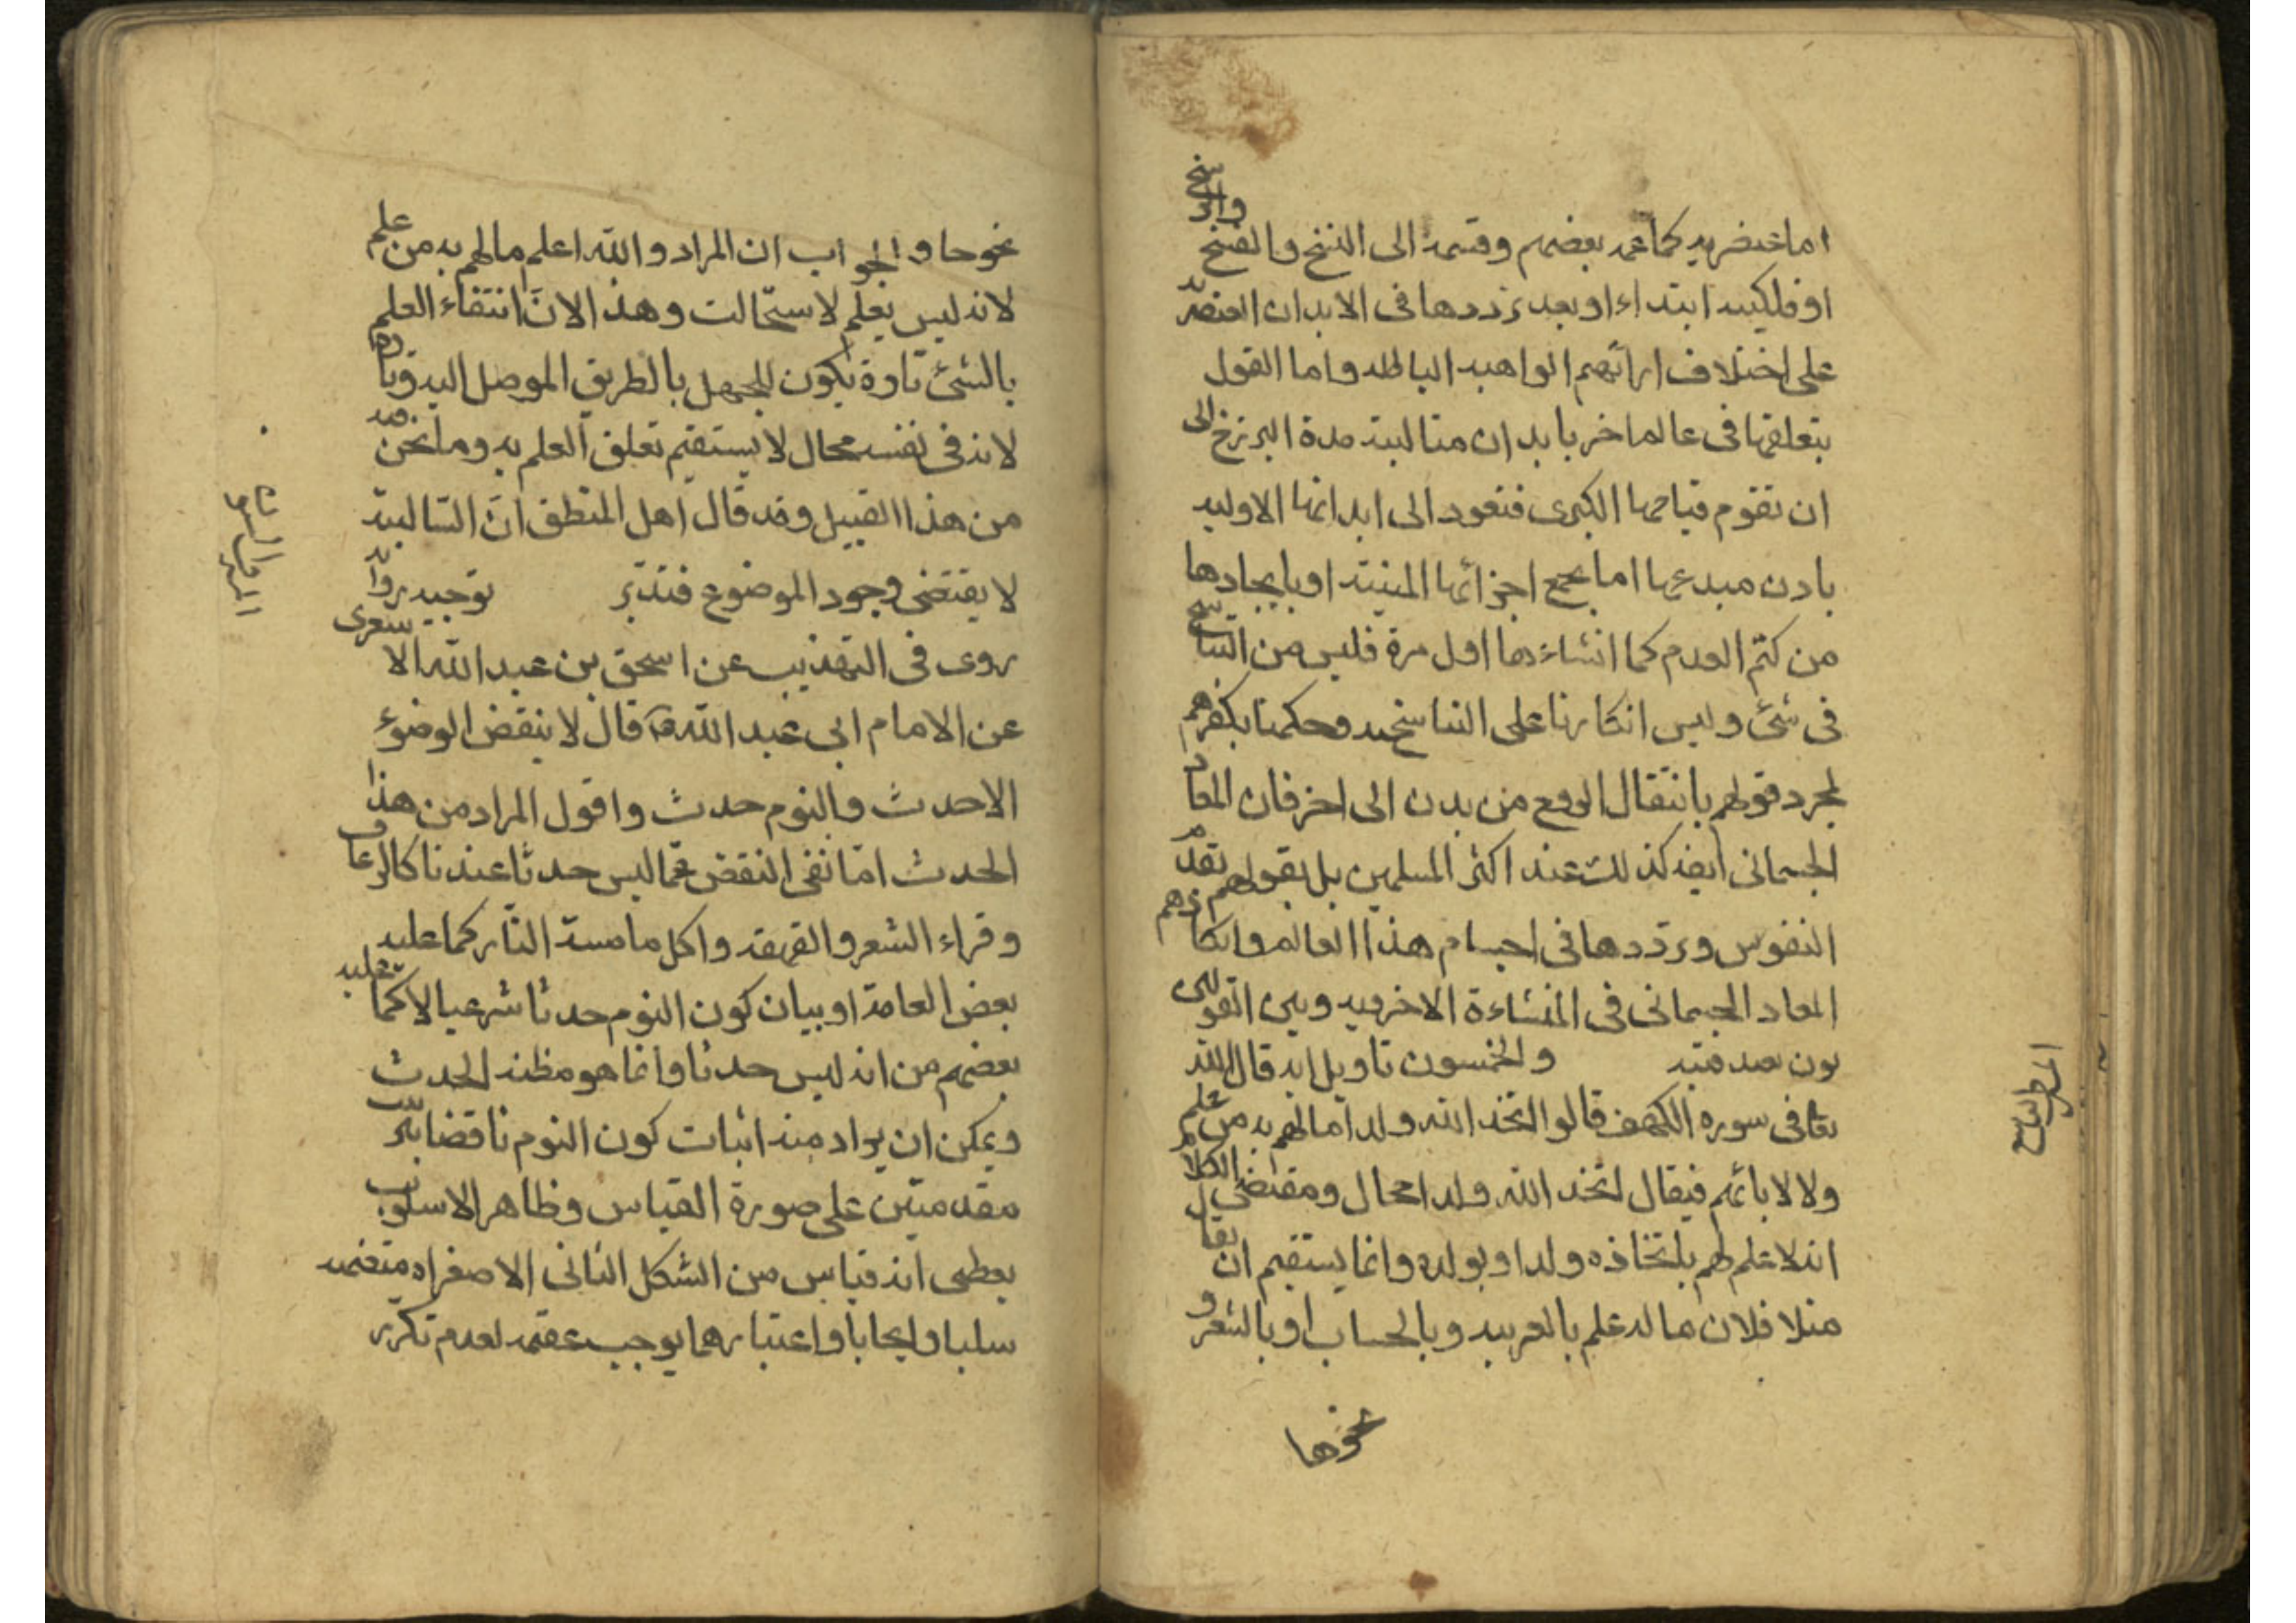 اما عنصريه كما زعمه بعضهم وقسمه الى النسخ والمسخ والفسخ والرسخ
او فلكيه ابتداء او بعد ترددها فى الابدان العنصريه
على اختلاف ارائهم الواهيه الباطله واما القول
بتعلقها فى عالم اخر بابدان مثاليه مدة البرزخ الى
ان تقوم قيامها الكبرى فتعود الى ابدانها الاوليه
باذن مبدعها اما بجمع اجزائها المبينته او بايجادها
من كتم العدم كما انشاءها اول مرة فليس من التناسخ
فى شئ وليس انكارنا على التناسخيه وحكمنا بكفرهم
لمجرد قولهم بانتقال الروح من بدن الى اخر فان المعاد
الجسمانى ايضا كذلك عند اكثر المسلمين بل بقولهم بقدم
النفوس وترددها فى اجسام هذا العالم وانكارهم
المعاد الجسمانى فى النشاءة الاخرويه وبين القولين
بون بعيد والخمسون تاويل ايه قال الله
تعا فى سوره الكهف قالوا اتخذ الله ولدا ما لهم به من علم
ولا لابائهم فيقال اتخذ الله ولدا محال ومقتضى الكلام
انه لا علم لهم باتخاذه ولدا او بولده وانما يستقيم ان يقال
مثلا فلان ما له علم بالعربيه وبالحساب او بالشعر و
نحوها
المطلب السابع
نحوها والجواب ان المراد والله اعلم ما لهم به من علم
لانه ليس يعلم لاستحالته وهذا لان انتفاء العلم
بالشئ تارة يكون للجهل بالطريق الموصل اليه وتارة
لانه فى نفسه محال لا يستقيم تعلق العلم به وما نحن فيه
من هذا القبيل وقد قال اهل المنطق ان السالبة
لا يقتضى وجود الموضوع فتدبر توجيه رواية
روى فى التهذيب عن اسحق بن عبد الله الاشعرى
عن الامام ابى عبد الله قال لا ينقض الوضوء
الا حدث والنوم حدث واقول المراد من هذا
الحدث اما نفى النقض عما ليس حدثا عندنا كالرعاف
وقراء الشعر والقهقهه واكل ما مسته النار كما عليه
بعض العامة او بيان كون النوم حدثا شرعيا لا كما عليه
بعضهم من انه ليس حدثا وانما هو مظنه الحدث
ويمكن ان يراد منه اثبات كون النوم ناقضا بترتيب
مقدمتين على صورة القياس وظاهر الاسلوب
يعطى انه قياس من الشكل الثانى الا صغراه متضمنه
سلبا وايجابا واعتبارهما يوجب عقمه لعدم تكرر